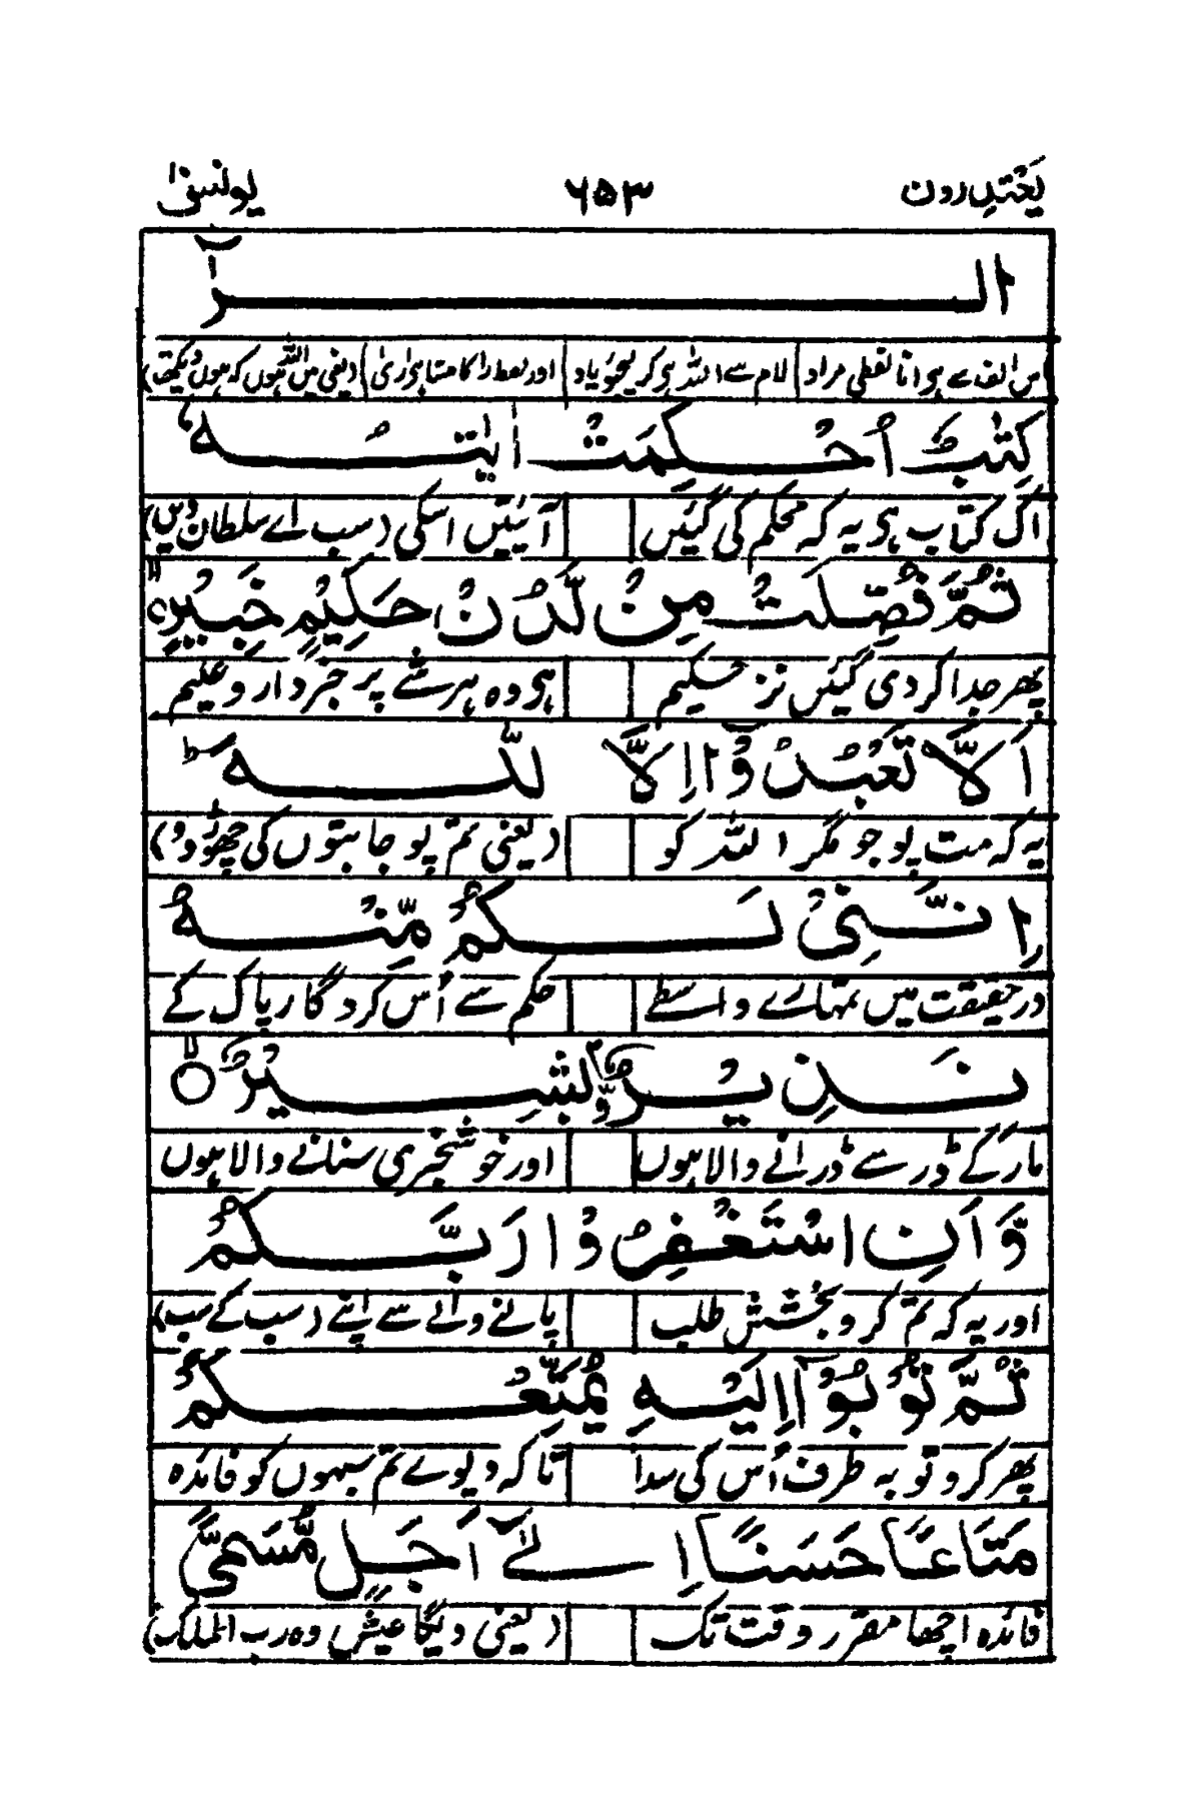 يَعْتَذِرُونَ ۶۵۳ یونس۱۰
الٓرٰ
اللہ ہی کر لیجو یاد
كِتٰبٌ اُحْكِمَتْ اٰيٰتُهٗ
اک کتاب ہی یہ کہ محکم کی گئیں آئتیں اسکی (سب اے سلطان دیں)
ثُمَّ فُصِّلَتْ مِنْ لَّدُنْ حَكِيْمٍ خَبِيْرٍ
پھر جدا کر دی گئیں نزد حکیم ہی وہ ہر شے پر خبردار و علیم
اَلَّا تَعْبُدُوْٓا اِلَّا اللّٰهَ ؕ
یہ کہ مت پوجو مگر اللہ کو (یعنی تم پوجا بتوں کی چھوڑ دو)
اِنَّنِيْ لَكُمْ مِّنْهُ
درحقیقت میں تمہارے واسطے حکم سے اُس کردگار پاک کے
نَذِيْرٌ وَّبَشِيْرٌ
مار کے ڈر سے ڈرانے والا ہوں اور خوشخبری سنانے والا ہوں
وَّاَنِ اسْتَغْفِرُوْا رَبَّكُمْ
اور یہ کہ تم کرو بخشش طلب پالنے والے سے اپنے (سب کے سب)
ثُمَّ تُوْبُوْٓا اِلَيْهِ يُمَتِّعْكُمْ
پھر کرو توبہ طرف اُس کی سدا تا کہ دیوے تم سبہوں کو فائدہ
مَّتَاعًا حَسَنًا اِلٰٓى اَجَلٍ مُّسَمًّى
فائدہ اچھا مقرر وقت تک (یعنی دیگا عیش وہ رب الملک)